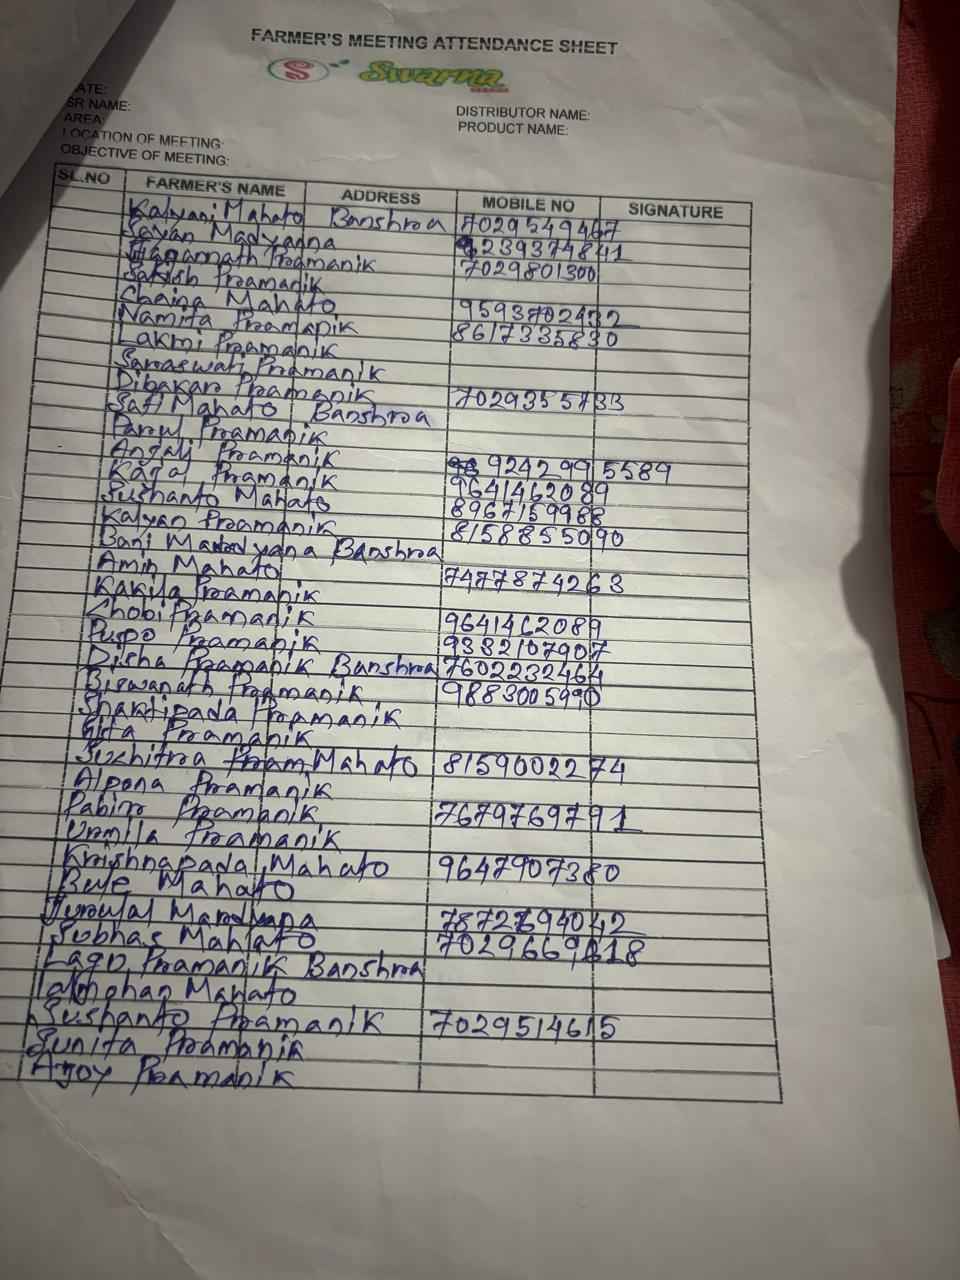 FARMER'S MEETING ATTENDANCE SHEET
S Swarna
ATE:
SR NAME:
DISTRIBUTOR NAME:
AREA:
PRODUCT NAME:
LOCATION OF MEETING:
OBJECTIVE OF MEETING:
SL.NO FARMER'S NAME ADDRESS MOBILE NO SIGNATURE
Kalyani Mahato Banshroa 7029549467
Sayan Madyanna 6239374841
Jagannath Pramanik 7029801300
Satish Pramanik
Chaina Mahato 9593702432
Namita Pramanik 8617335830
Lakmi Pramanik
Saraswati Pramanik
Dibakar Pramanik 7029355733
Sati Mahato Banshroa
Parul Pramanik
Angali Pramanik 9242995589
Kajal Pramanik 9641462089
Sushanto Mahato 8967159988
Kalyan Pramanik 8158855090
Bani Banshroa
Amin Mahato 7477874263
Kakila Pramanik
Chobi Pramanik 9641462089
Puspo Pramanik 9332107907
Disha Pramanik Banshroa 7602232464
Biswanath Pramanik 9883005990
Shaktipada Pramanik
Gita Pramanik
Suchitra Pram Mahato 8159002274
Alpona Pramanik
Pabitr Pramanik 7679769791
Urmila Pramanik
Krishnapada Mahato 9647907380
Bule Mahato
7872694042
Subhas Mahato 7029669618
Lago Pramanik Banshroa
Lalmohan Mahato
Sushanto Pramanik 7029514615
Sunita Pramanik
Ajoy Pramanik